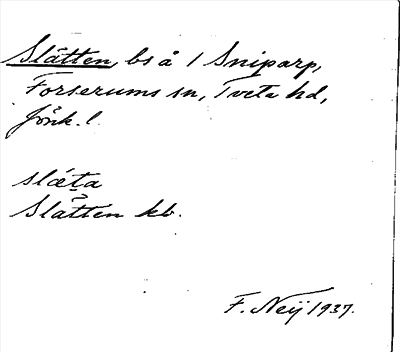 Slätten, bs å 1 Sniparp,
Forserums sn, Tveta hd,
Jönk. l.
slǽta
Slätten kb.
F. Neij 1937.